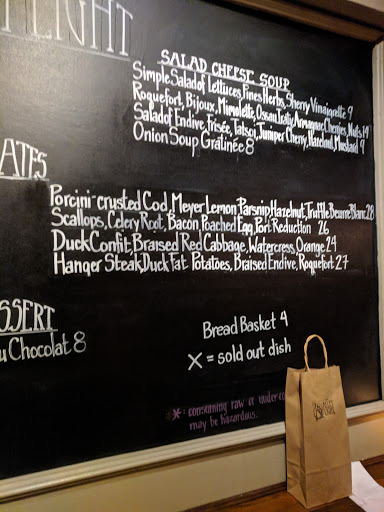 FLIGHT
SALAD CHEESE SOUP
Simple Salad of Lettuces, Fines Herbs, Sherry Vinaigrette 9
Roquefort, Bijoux, Mimolette, Ossau Iraty, Armagnac Cherries, Nuts 19
Salad of Endive, Frisée, Tatsoi, Juniper Cherry, Hazelnut, Mustard 9
Onion Soup Gratinée 8
ATES
Porcini-crusted Cod, Meyer Lemon, Parsnip, Hazelnut, Truffle Beurre Blanc 28
Scallops, Celery Root, Bacon, Poached Egg, Port Reduction 26
Duck Confit, Braised Red Cabbage, Watercress, Orange 24
Hanger Steak, Duck Fat Potatoes, Braised Endive, Roquefort 27
SSERT
u Chocolat 8
Bread Basket 4
X = sold out dish
*: consuming raw or under co
may be hazardous.